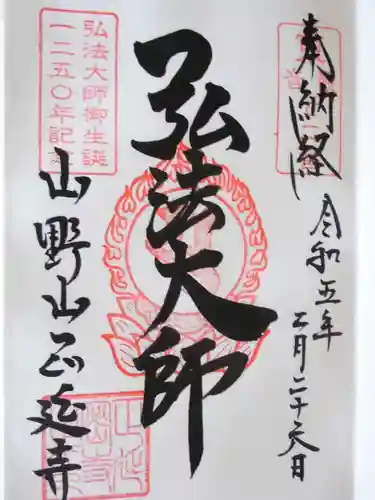 奉納経
令和五年
二月二十六日
弘法大師
弘法大師御生誕
一二五〇年記念
山野山正延寺